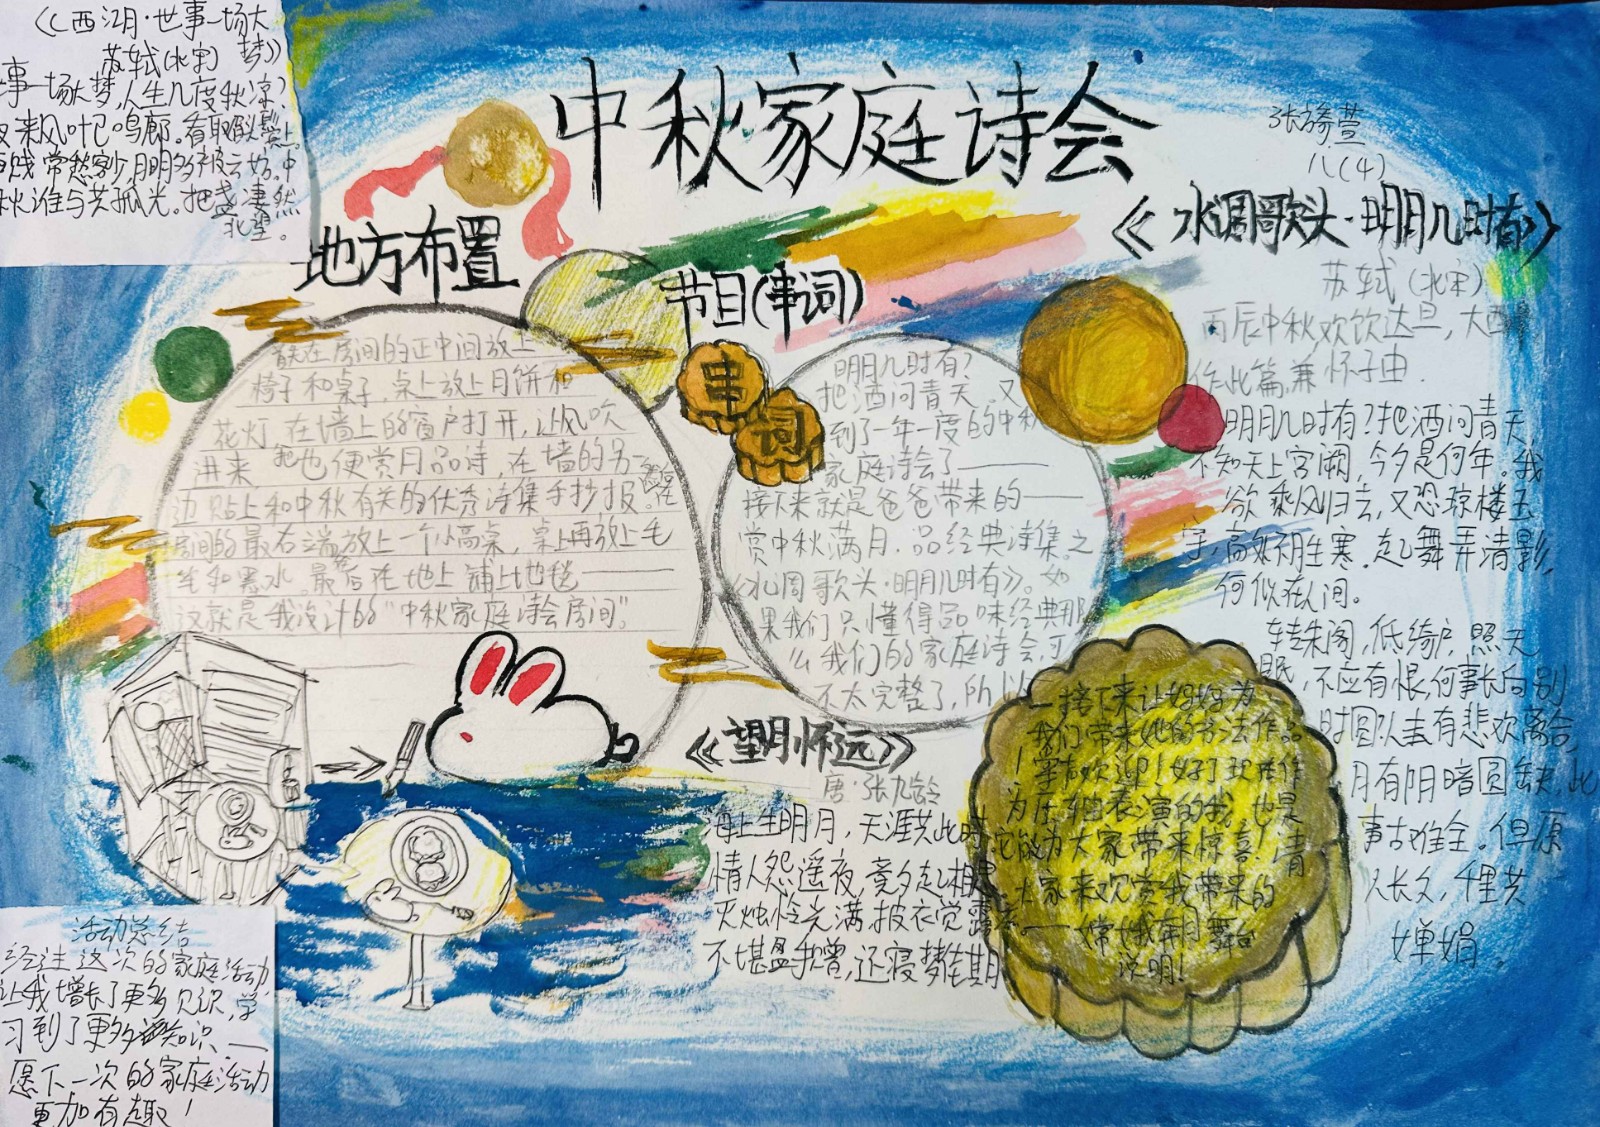 中秋家庭诗会
八(4)
《西江月·世事一场大
梦》
苏轼(北宋)
事一场大梦,人生几度秋凉?
来风叶已鸣廊。看取眉头鬓上。
贱常愁客少,月明多被云妨。中
秋谁与共孤光。把盏凄然
北望。
地方布置
在房间的正中间放上
椅子和桌子,桌上放上月饼和
花灯 在墙上的窗户打开,让风吹
进来 也便赏月品诗,在墙的另一
边贴上和中秋有关的优秀诗集手抄报。在
房间的最右端放上一个小高桌,桌上再放上毛
笔和墨水。最后在地上铺上地毯——
这就是我设计的“中秋家庭诗会房间”。
节目(串词)
串
词
明月几时有?
把酒问青天。又
到了一年一度的中秋
家庭诗会了——
接下来就是爸爸带来的——
赏中秋满月.品经典诗集。之
《水调歌头·明月几时有》。如
果我们只懂得品味经典那
么我们的家庭诗会,可
不太完整了,所以
—接下来让妈妈为
我们带来她的书法作品
!掌声欢迎!好了现在作
为压轴表演的我,也是
它能为大家带来惊喜!请
大家来欢赏我带来的
——嫦娥奔月舞台
说明!
《望月怀远》
唐·张九龄
海上生明月,天涯共此时
情人怨遥夜,竟夕起相思
灭烛怜光满,披衣觉露滋
不堪盈手赠,还寝梦佳期
《水调歌头·明月几时有》
苏轼(北宋)
丙辰中秋欢饮达旦,大醉
作此篇,兼怀子由.
明月几时有?把酒问青天
不知天上宫阙,今夕是何年。我
欲乘风归去,又恐琼楼玉
宇,高处不胜寒.起舞弄清影,
何似在人间。
转朱阁,低绮户,照无
眠,不应有恨,何事长向别
时圆?人有悲欢离合,
月有阴晴圆缺,此
事古难全。但愿
人长久,千里共
婵娟。
活动总结
经过这次的家庭活动,
让我增长了更多见识,学
习到了更多知识.——
愿下一次的家庭活动
更加有趣!